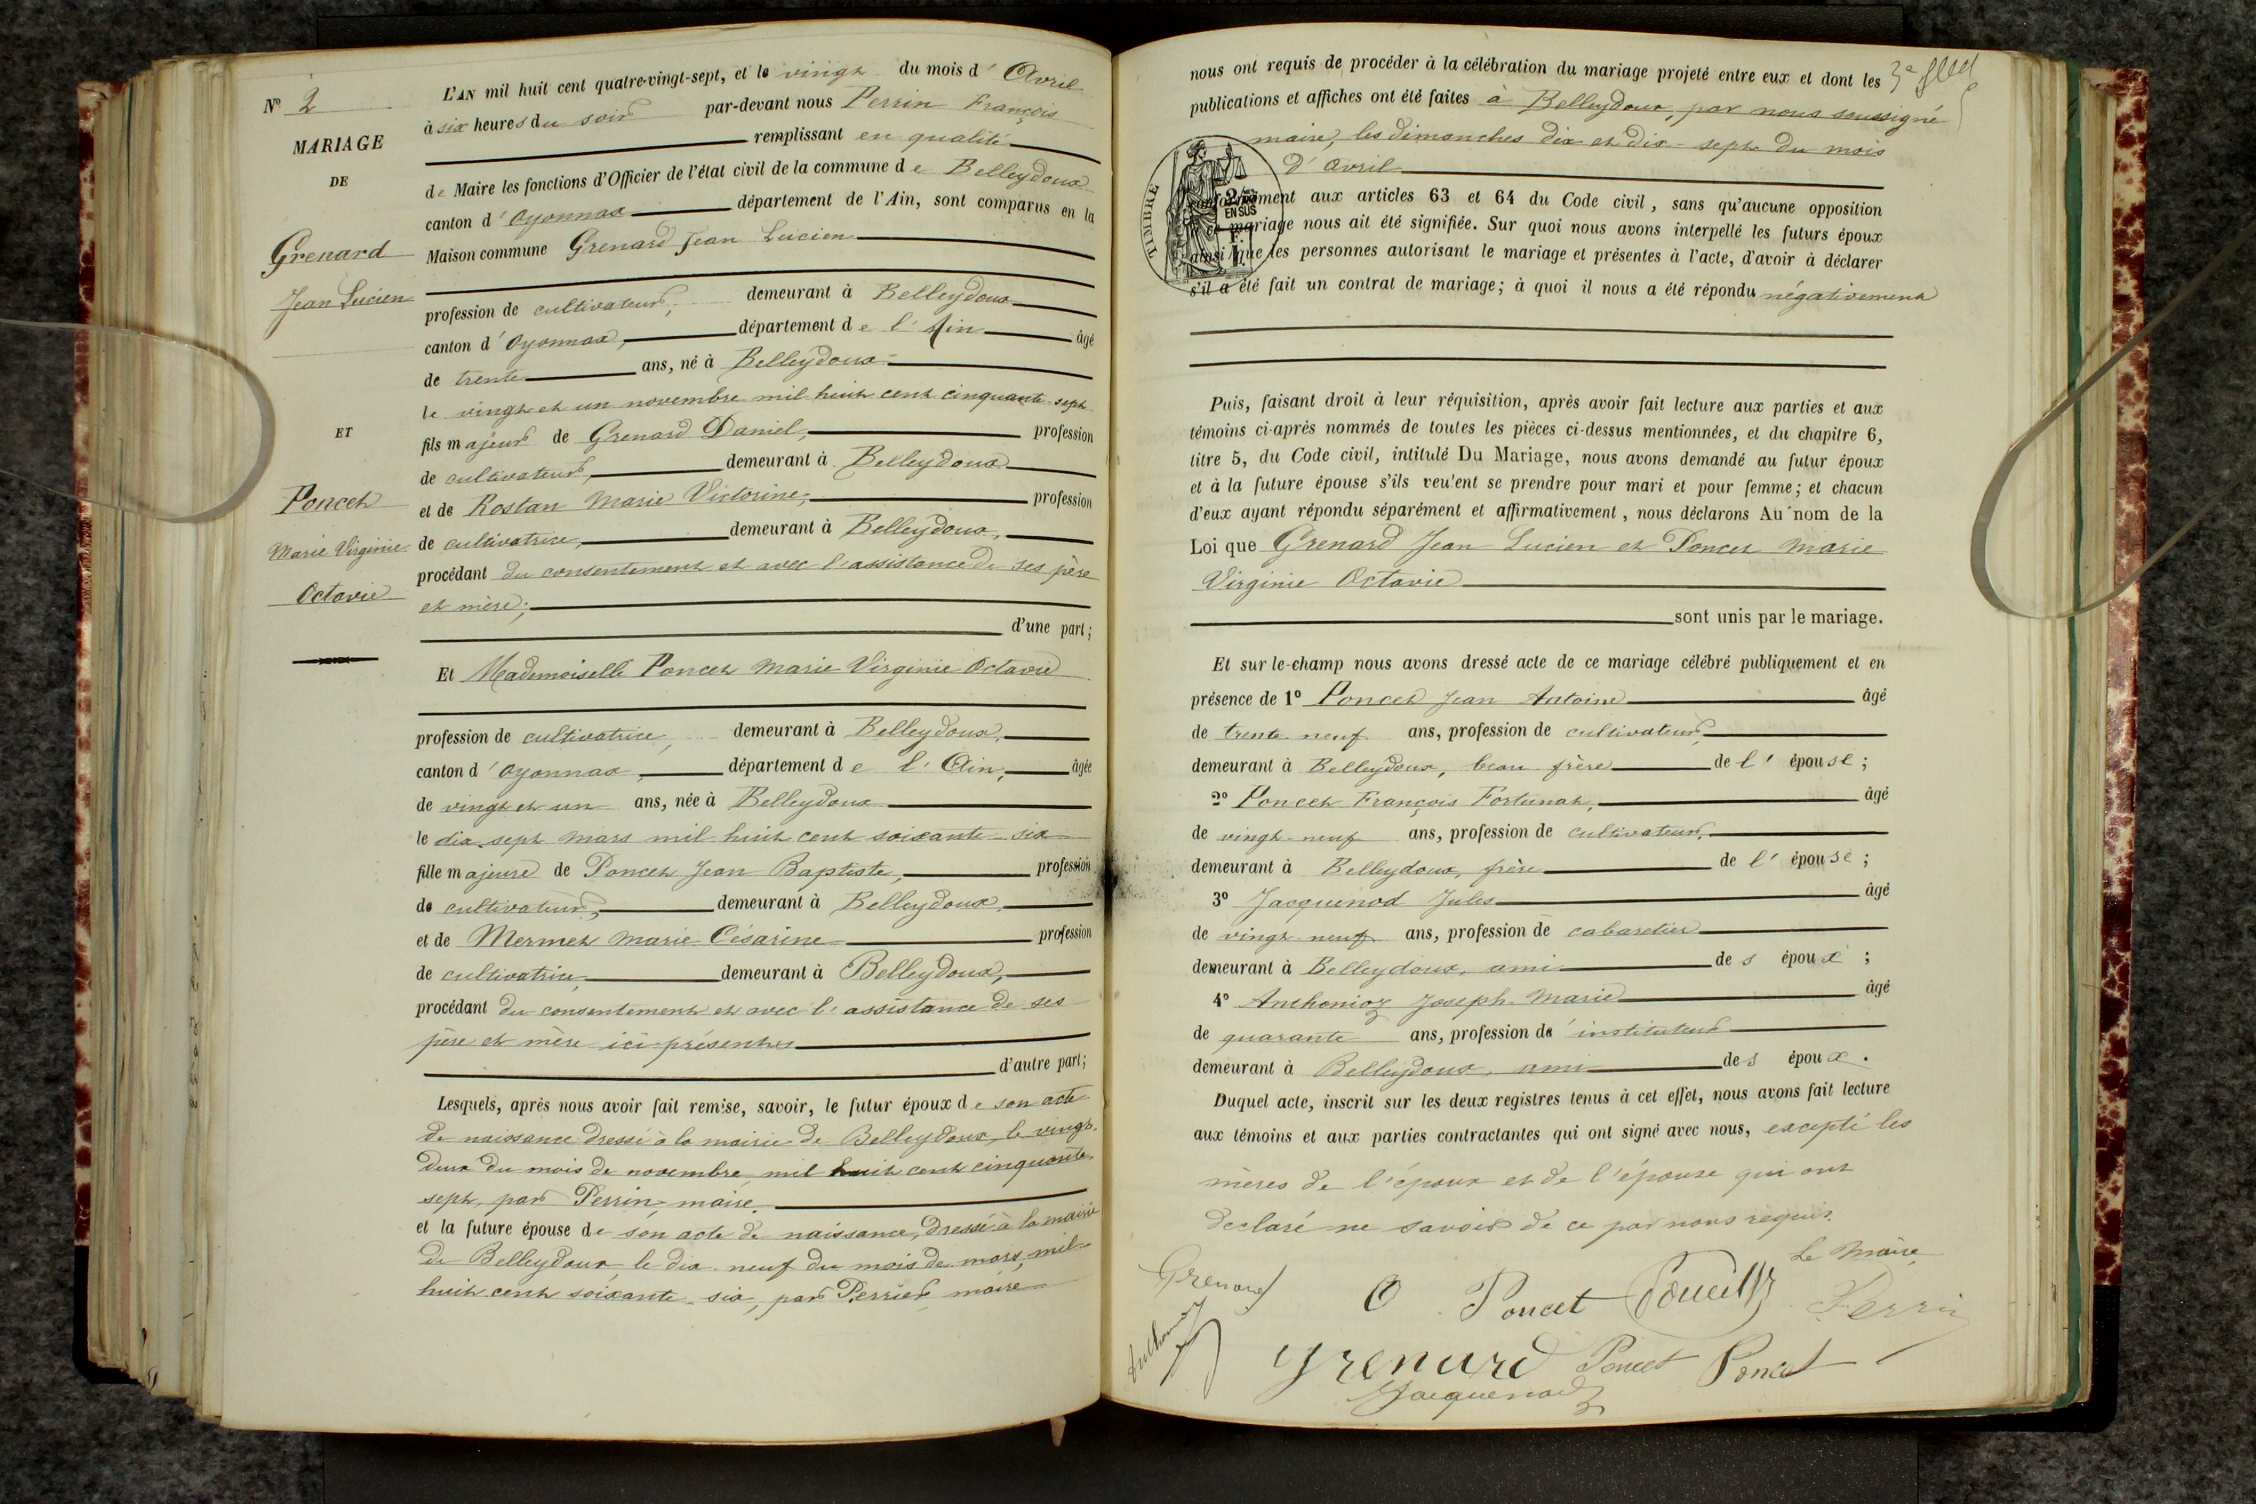 Nº 2
MARIAGE
DE
Grenard
Jean Lucien
ET
Poncet
Marie Virginie
Octavie
L'AN mil huit cent quatre-vingt-sept, et le vingt du mois d'Avril
à six heures du soir par-devant nous Perrin François
remplissant en qualité
de Maire les fonctions d'Officier de l'état civil de la commune de Belleydoux
canton d'Oyonnax département de l'Ain, sont comparus en la
Maison commune Grenard Jean Lucien
profession de cultivateur, demeurant à Belleydoux
canton d'Oyonnax, département de l'Ain âgé
de trente ans, né à Belleydoux
le vingt et un novembre mil huit cent cinquante-sept
fils majeur de Grenard Daniel, profession
de cultivateur, demeurant à Belleydoux
et de Rostan Marie Victorine, profession
de cultivatrice, demeurant à Belleydoux,
procédant du consentement et avec l'assistance de ses père
et mère;
d'une part;
Et Mademoiselle Poncet Marie Virginie Octavie
profession de cultivatrice, demeurant à Belleydoux,
canton d'Oyonnax, département de l'Ain, âgée
de vingt et un ans, née à Belleydoux
le dix-sept mars mil huit cent soixante-six
fille majeure de Poncet Jean Baptiste, profession
de cultivateur, demeurant à Belleydoux,
et de Mermet Marie Césarine profession
de cultivatrice, demeurant à Belleydoux,
procédant du consentement et avec l'assistance de ses
père et mère ici présents
d'autre part;
Lesquels, après nous avoir fait remise, savoir, le futur époux de son acte
de naissance dressé à la mairie de Belleydoux, le vingt-
deux du mois de novembre mil huit cent cinquante-
sept, par Perrin, maire.
et la future épouse de son acte de naissance, dressé à la mairie
de Belleydoux le dix-neuf du mois de mars, mil
huit cent soixante-six, par Perrier maire
nous ont requis de procéder à la célébration du mariage projeté entre eux et dont les
publications et affiches ont été faites à Belleydoux, par nous soussigné
maire, les dimanches dix et dix-sept du mois
d'avril
conformément aux articles 63 et 64 du Code civil, sans qu'aucune opposition
à ce mariage nous ait été signifiée. Sur quoi nous avons interpellé les futurs époux
ainsi que les personnes autorisant le mariage et présentes à l'acte, d'avoir à déclarer
s'il a été fait un contrat de mariage; à quoi il nous a été répondu négativement
TIMBRE
EN SUS
Puis, faisant droit à leur réquisition, après avoir fait lecture aux parties et aux
témoins ci-après nommés de toutes les pièces ci-dessus mentionnées, et du chapitre 6,
titre 5, du Code civil, intitulé Du Mariage, nous avons demandé au futur époux
et à la future épouse s'ils veulent se prendre pour mari et pour femme; et chacun
d'eux ayant répondu séparément et affirmativement, nous déclarons Au nom de la
Loi que Grenard Jean Lucien et Poncet Marie
Virginie Octavie
sont unis par le mariage.
Et sur-le-champ nous avons dressé acte de ce mariage célébré publiquement et en
présence de 1º Poncet Jean Antoine âgé
de trente-neuf ans, profession de cultivateur,
demeurant à Belleydoux, beau frère de l'épouse;
2º Poncet François Fortunat, âgé
de vingt-neuf ans, profession de cultivateur,
demeurant à Belleydoux, frère de l'épouse;
3º Jacquenod Jules âgé
de vingt-neuf ans, profession de cabaretier
demeurant à Belleydoux, ami des époux;
4º Anthonioz Joseph-Marie âgé
de quarante ans, profession d'instituteur
demeurant à Belleydoux, ami des époux.
Duquel acte, inscrit sur les deux registres tenus à cet effet, nous avons fait lecture
aux témoins et aux parties contractantes qui ont signé avec nous, excepté les
mères de l'époux et de l'épouse qui ont
declaré ne savoir de ce par nous requis.
Le Maire,
Grenard O. Poncet Poncet Perrin
Anthonioz
Grenard Poncet Poncet
Jacquenod